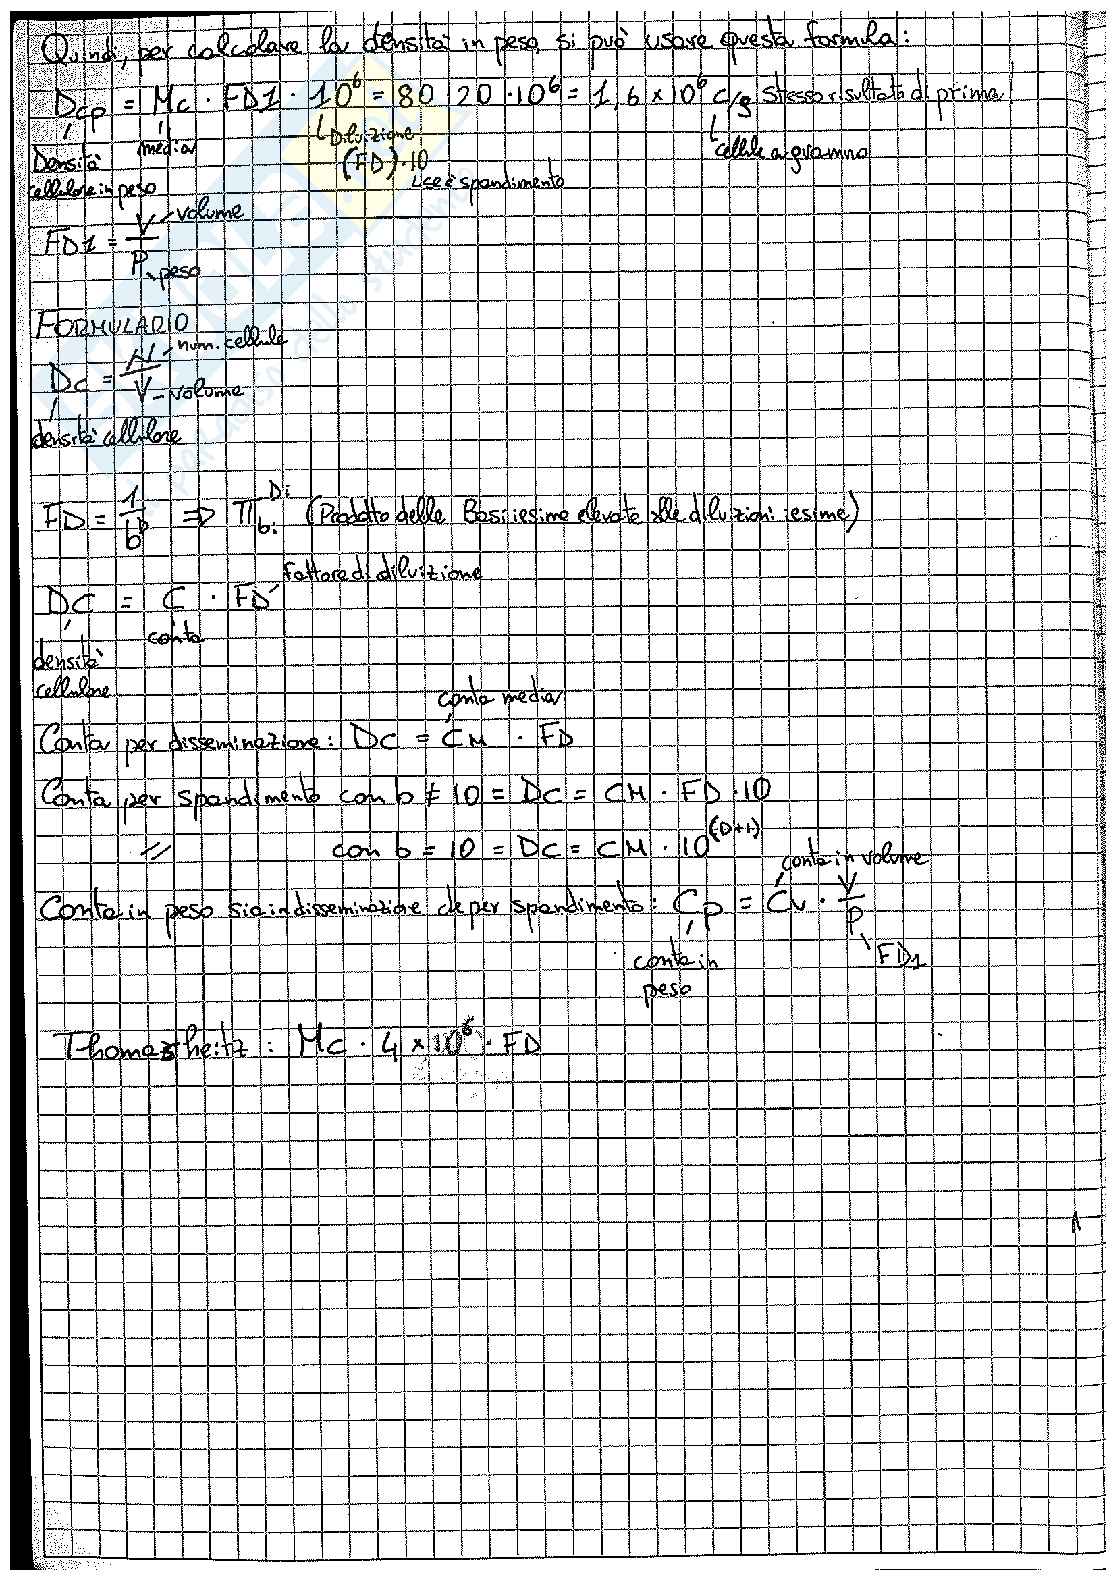 Quindi, per calcolare la densità in peso si può usare questa formula:
Dcp = Mc · FD1 · 10⁶ = 80 · 20 · 10⁶ = 1,6 × 10⁶ c/g Stesso risultato di prima
Densità cellulare in peso
media
Diluizione
(FD)·10
se è spandimento
cellule a grammo
FD1 = V/P
volume
peso
FORMULARIO
Dc = N/V
num. cellule
volume
densità cellulare
FD = 1/bᴰ ⇒ π bi Di (Prodotto delle Basi iesime elevate alle diluizioni iesime)
fattore di diluizione
DC = C · FD
conta
densità cellulare
conta media
Conta per disseminazione: DC = CM · FD
Conta per spandimento con b ≠ 10 = DC = CM · FD · 10
// con b = 10 = DC = CM · 10⁽ᴰ⁺¹⁾
conta in volume
Conta in peso sia in disseminazione che per spandimento: Cp = Cv · V/P
FD1
conta in peso
Thomas heitz: Mc · 4 × 10⁶ · FD